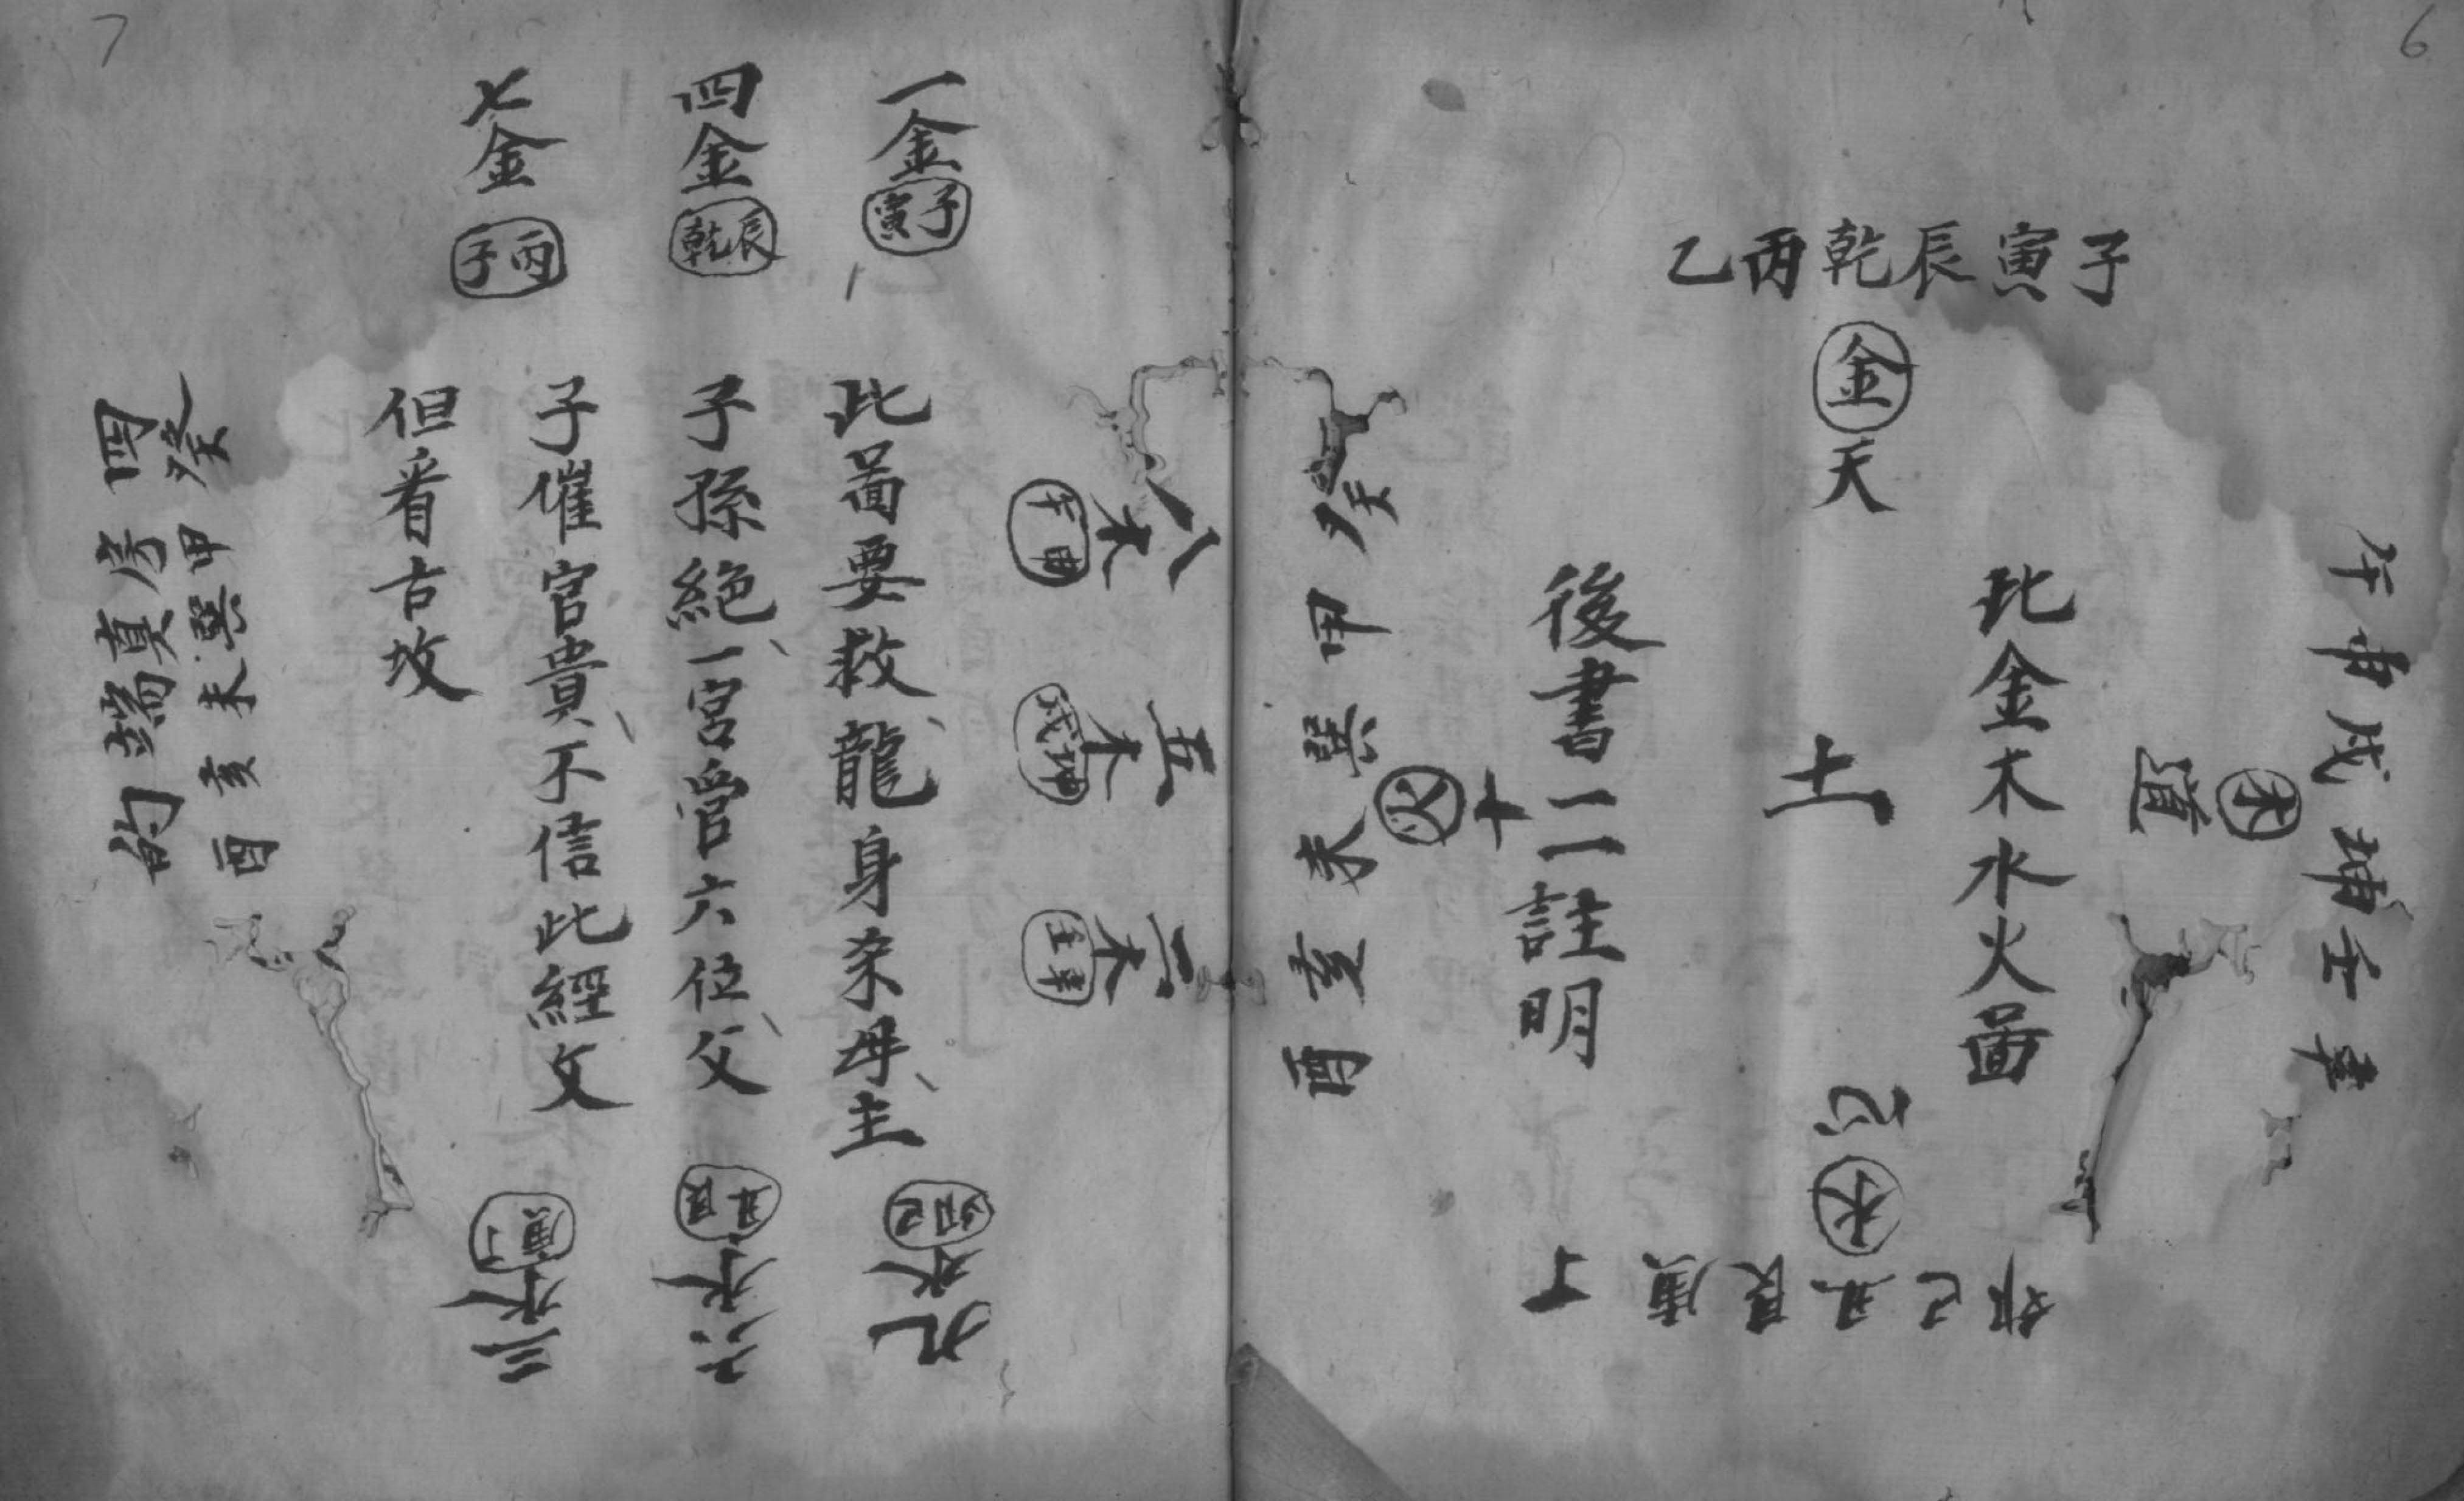 6
子寅辰乾丙乙
金
天
午申戌坤壬辛
木
道
此金木水火啚
土
後書二註明
心
水
卯巳丑艮庚丁
十
火
癸甲巽未亥酉
7
一金
子寅
四金
辰乾
七金
丙子
八木
申午
五木
坤戌
二木
辛壬
此啚要救龍身采母主
子孫絶一宮管六位父
子催官貴不信此經文
但看古坟
九水
卯巳
六水
丑艮
三水
庚丁
癸甲巽未亥酉
四房真端的